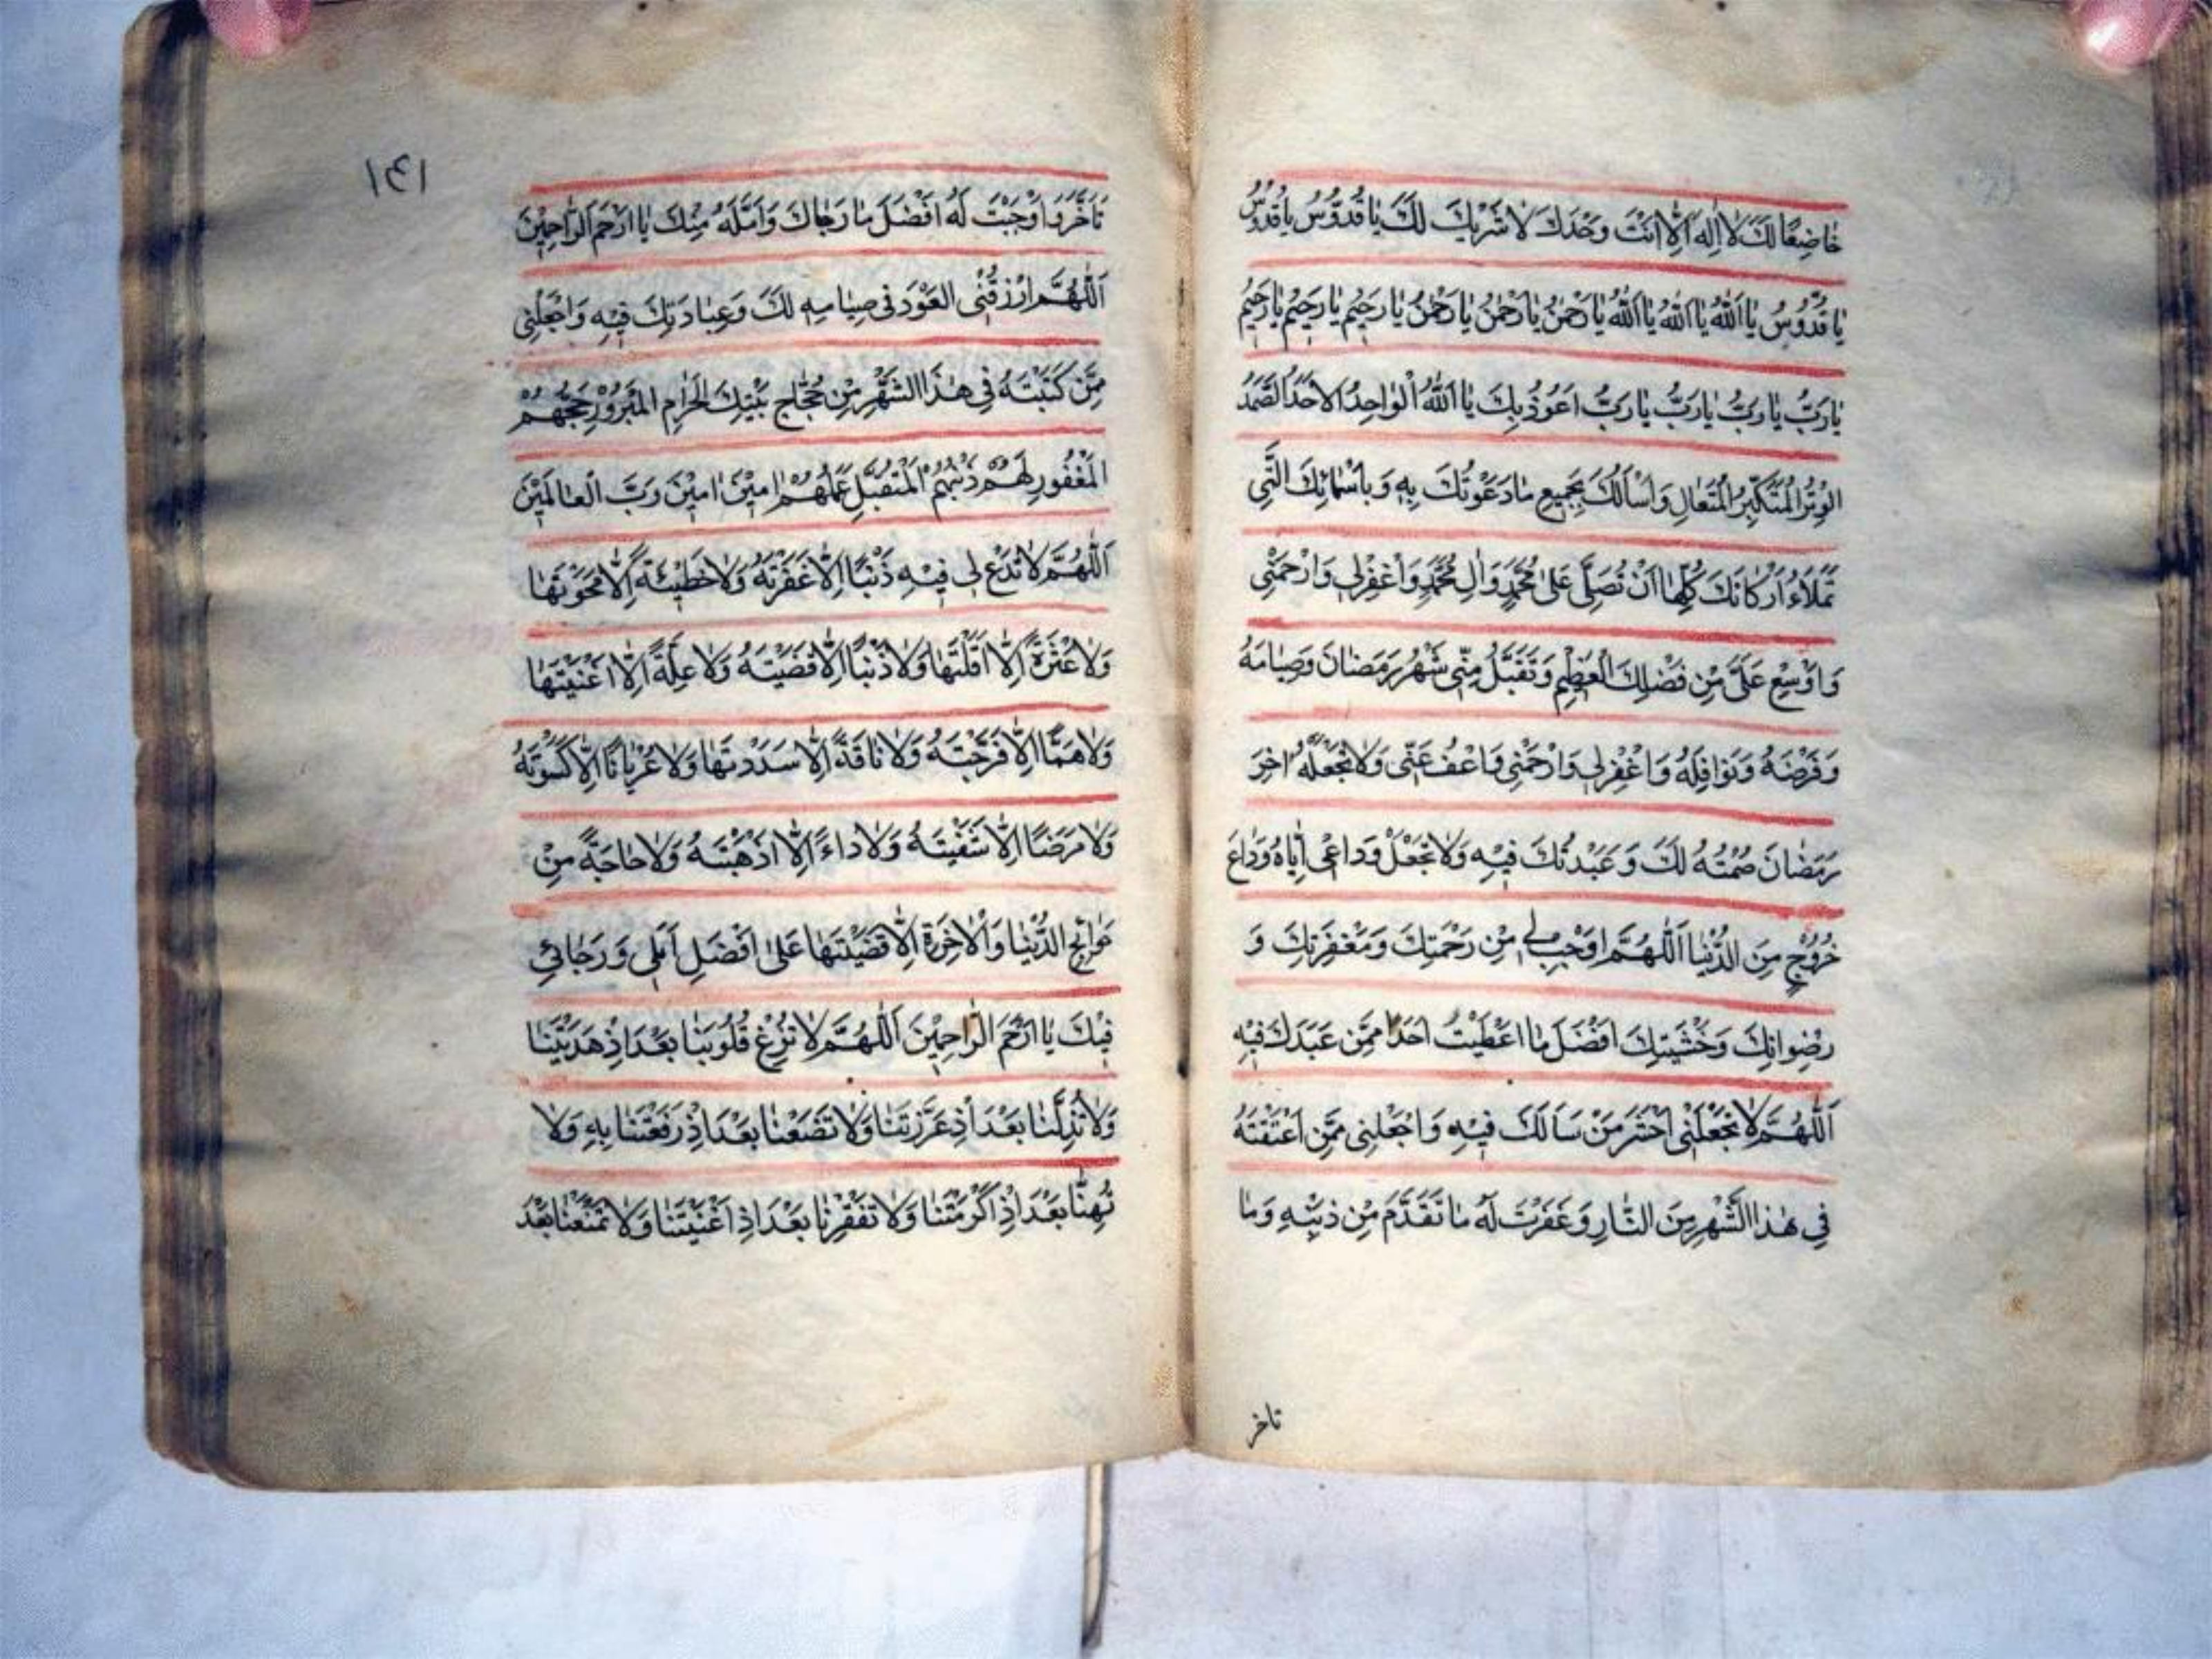 خَاضِعًا لَكَ لَا اِلٰهَ اِلَّا اَنْتَ وَحْدَكَ لَا شَرِيْكَ لَكَ يَا قُدُّوْسُ يَا قُدُّوْسُ
يَا قُدُّوْسُ يَا اَللّٰهُ يَا اَللّٰهُ يَا اَللّٰهُ يَا رَحْمٰنُ يَا رَحْمٰنُ يَا رَحْمٰنُ يَا رَحِيْمُ يَا رَحِيْمُ يَا رَحِيْمُ
يَا رَبُّ يَا رَبُّ يَا رَبُّ يَا رَبُّ اَعُوْذُ بِكَ يَا اَللّٰهُ الْوَاحِدُ الْاَحَدُ الصَّمَدُ
الْوِتْرُ الْمُتَكَبِّرُ الْمُتَعَالِ وَاَسْاَلُكَ بِجَمِيْعِ مَا دَعَوْتُكَ بِهٖ وَبِاَسْمَائِكَ الَّتِي
تَمْلَاءُ اَرْكَانَكَ كُلِّهَا اَنْ تُصَلِّيَ عَلٰى مُحَمَّدٍ وَاٰلِ مُحَمَّدٍ وَاغْفِرْ لِي وَارْحَمْنِي
وَاَوْسِعْ عَلَيَّ مِنْ فَضْلِكَ الْعَظِيْمِ وَتَقَبَّلْ مِنِّي شَهْرَ رَمَضَانَ وَصِيَامَهُ
وَفَرْضَهُ وَنَوَافِلَهُ وَاغْفِرْ لِي وَارْحَمْنِي وَاعْفُ عَنِّي وَلَا تَجْعَلْهُ اٰخِرَ
رَمَضَانَ صُمْتُهُ لَكَ وَعَبَدْتُكَ فِيْهِ وَلَا تَجْعَلْ وَدَاعِي اِيَّاهُ وَدَاعَ
خُرُوْجٍ مِنَ الدُّنْيَا اَللّٰهُمَّ اَوْجِبْ لِي مِنْ رَحْمَتِكَ وَمَغْفِرَتِكَ وَ
رِضْوَانِكَ وَخَشْيَتِكَ اَفْضَلَ مَا اَعْطَيْتَ اَحَدًا مِمَّنْ عَبَدَكَ فِيْهِ
اَللّٰهُمَّ لَا تَجْعَلْنِي اَخْسَرَ مَنْ سَاَلَكَ فِيْهِ وَاجْعَلْنِي مِمَّنْ اَعْتَقْتَهُ
فِي هٰذَا الشَّهْرِ مِنَ النَّارِ وَغَفَرْتَ لَهُ مَا تَقَدَّمَ مِنْ ذَنْبِهٖ وَمَا
تاخر
۱۴۱
تَاَخَّرَ وَاَوْجَبْتَ لَهُ اَفْضَلَ مَا رَجَاكَ وَاَمَّلَهُ مِنْكَ يَا اَرْحَمَ الرَّاحِمِيْنَ
اَللّٰهُمَّ ارْزُقْنِي الْعَوْدَ فِي صِيَامِهِ لَكَ وَعِبَادَتِكَ فِيْهِ وَاجْعَلْنِي
مِمَّنْ كَتَبْتَهُ فِي هٰذَا الشَّهْرِ مِنْ حُجَّاجِ بَيْتِكَ الْحَرَامِ الْمَبْرُوْرِ حَجُّهُمْ
الْمَغْفُوْرِ لَهُمْ ذَنْبُهُمْ الْمُتَقَبَّلِ عَمَلُهُمْ اٰمِيْنَ اٰمِيْنَ رَبَّ الْعَالَمِيْنَ
اَللّٰهُمَّ لَا تَدَعْ لِي فِيْهِ ذَنْبًا اِلَّا غَفَرْتَهُ وَلَا خَطِيْئَةً اِلَّا مَحَوْتَهَا
وَلَا عَثْرَةً اِلَّا اَقَلْتَهَا وَلَا دَيْنًا اِلَّا قَضَيْتَهُ وَلَا عِلَّةً اِلَّا اَغْنَيْتَهَا
وَلَا هَمًّا اِلَّا فَرَّجْتَهُ وَلَا فَاقَةً اِلَّا سَدَدْتَهَا وَلَا عُرْيَانًا اِلَّا كَسَوْتَهُ
وَلَا مَرَضًا اِلَّا شَفَيْتَهُ وَلَا دَاءً اِلَّا اَذْهَبْتَهُ وَلَا حَاجَةً مِنْ
حَوَائِجِ الدُّنْيَا وَالْاٰخِرَةِ اِلَّا قَضَيْتَهَا عَلٰى اَفْضَلِ اَمَلِي وَرَجَائِي
فِيْكَ يَا اَرْحَمَ الرَّاحِمِيْنَ اَللّٰهُمَّ لَا تُزِغْ قُلُوْبَنَا بَعْدَ اِذْ هَدَيْتَنَا
وَلَا تُذِلَّنَا بَعْدَ اِذْ عَزَّزْتَنَا وَلَا تَضَعْنَا بَعْدَ اِذْ رَفَعْتَنَا بِهٖ وَلَا
تُهِنَّا بَعْدَ اِذْ اَكْرَمْتَنَا وَلَا تُفْقِرْنَا بَعْدَ اِذْ اَغْنَيْتَنَا وَلَا تَمْنَعْنَا بَعْدَ